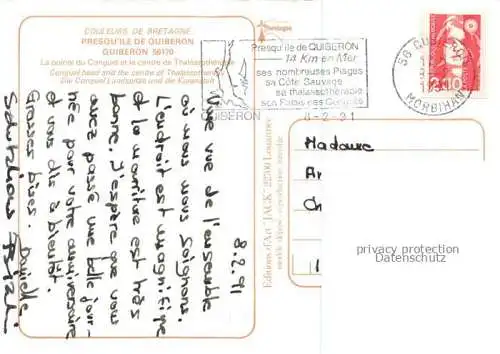 COULEURS DE BRETAGNE
PRESQU'ILE DE QUIBERON
QUIBERON 56170
La pointe du Conguel et le centre de Thalassothérapie
Conguel head and the centre of Thalassotherapy
Die Conguel Landspitze und der Kuranstalt
Bretagne
QUIBERON
Presqu'ile de QUIBERON
14 Km en Mer
ses nombreuses Plages
sa Côte Sauvage
sa thalassothérapie
son Palais des Congrès
8-2-91
56 QUIBERON
MORBIHAN
2,10
8.2.91
Une vue de l'ensemble
où nous nous soignons.
L'endroit est magnifique
et la nourriture est très
bonne. J'espère que vous
aurez passé une belle jour-
née pour votre anniversaire
et vous dis à bientôt.
Grosses bises. Danielle
Editions d'Art "JACK" 22500 Louannec
Madame
privacy protection
Datenschutz